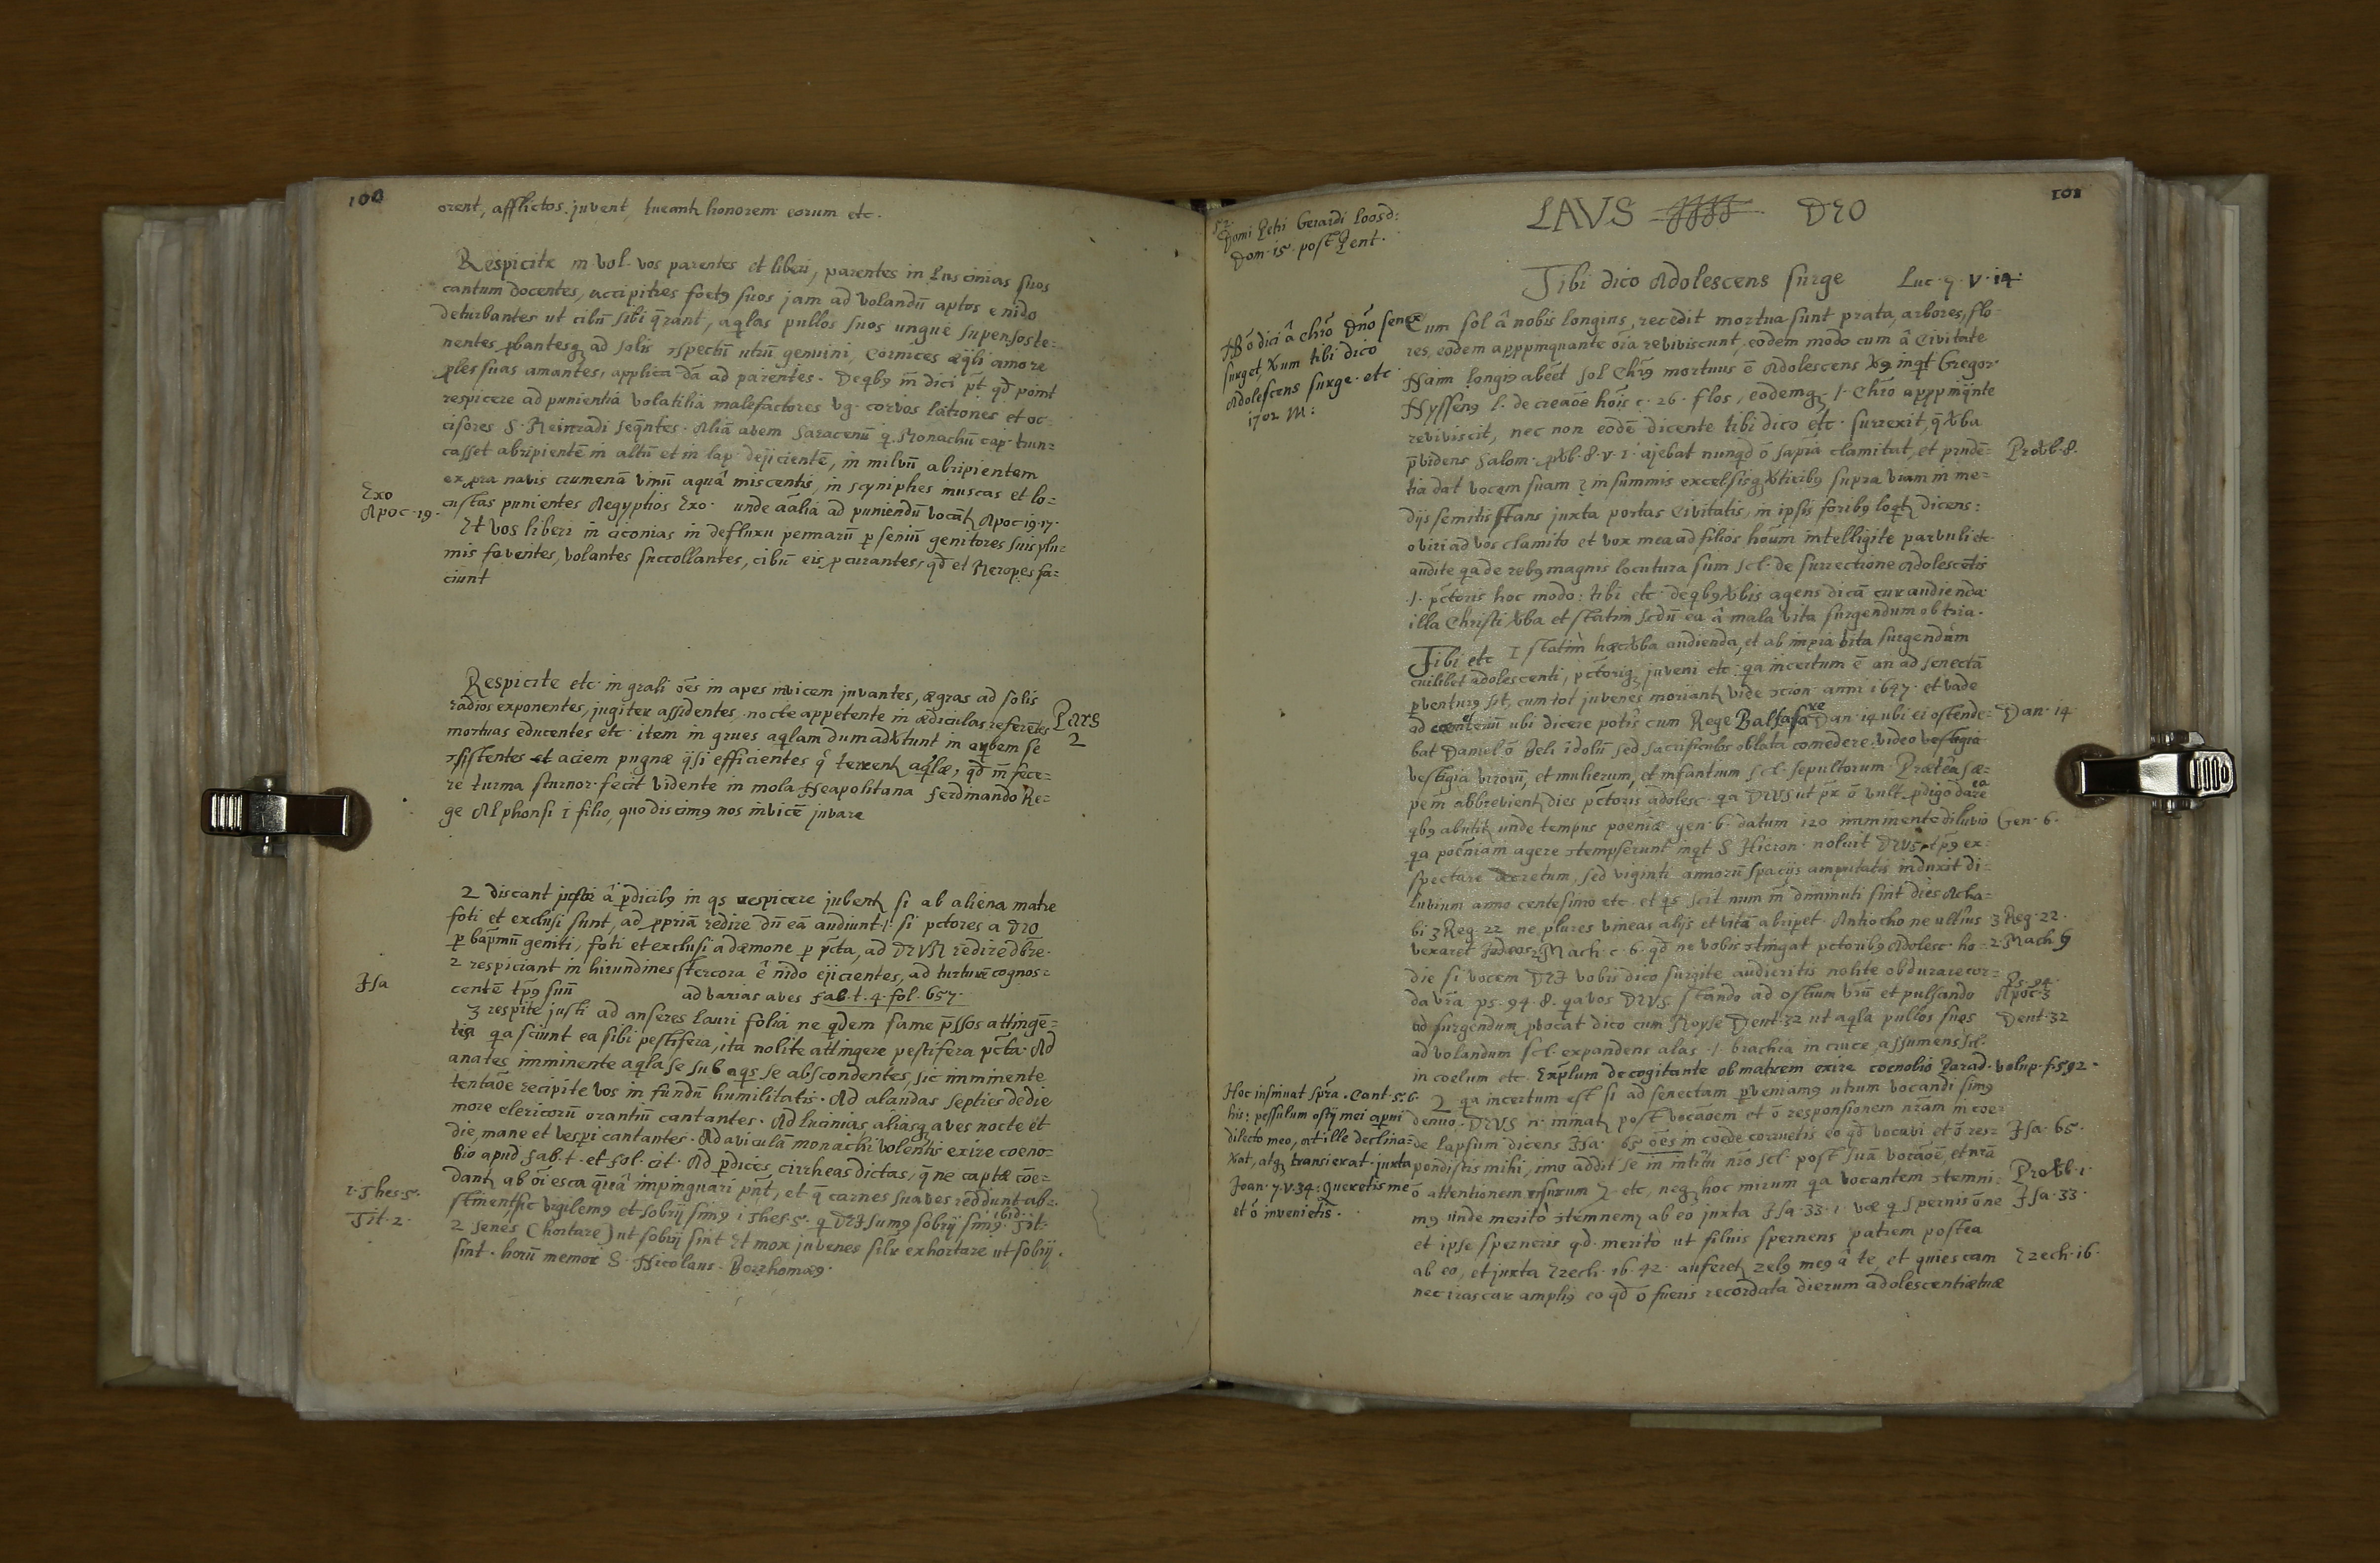 100
orent, afflictos juvent, tueantr honorem eorum etc.
Respicite in vol. vos parentes et liberi, parentes in Luscinias suos
cantum docentes, accipitres foetꝰ suos jam ad volandū aptos e nido
deturbantes ut cibū sibi q̄rant, aqlas pullos suos ungue
nentes ad solis utrū genuini, Cornices amore
ples suas amantes, applica ad parentes. Deqbꝰ dici qd
respicere ad punientiā volatilia malefactores vg. corvos latrones et oc-
cisores S. Meinradi seqntes. Aliā avem Saracenū q Monachū cap. trun-
casset abripientē in altū et in lap. dejicientē, in milvū abripientem
navis crumenā vinū aquâ miscentis, in scyniphes muscas et lo-
custas punientes Aegyptios Exo. unde aālia ad puniendū vocātr Apoc 19.17.
Exo
Apoc. 19.
Et vos liberi in ciconias in defluxu pennarū p seniū genitores suis plu-
mis foventes, volantes succollantes, cibū eis pcurantes, qd et Meropes fa-
ciunt
Respicite etc. in grali oēs in apes invicem juvantes, aegras ad solis
radios exponentes, jugiter assidentes, nocte appetente in aediculas referētes
mortuas educentes etc. item in grues aqlam dum advtunt in orbem se
sistentes et aciem pugnae qsi efficientes q terrentr aqlae, qd fece-
re turma sturnor. fecit vidente in mola Neapolitana Ferdinando Re-
ge Alphonsi I filio, quo discimꝰ nos invicē juvare
Pars
2
2 discant â pdicibꝰ in qs respicere jubentr si ab aliena matre
foti et exclusi sunt, ad ppriā redire dū eā audiunt .i. si pctores a Deo
p bapmū geniti, foti et exclusi a daemone p pcta, ad DEUM redire
2 respiciant in hirundines stercora ê nido ejicientes, ad turturē cognos-
centē tpꝰ suū ad varias aves fab. t. 4. fol. 657.
Jsa
3 respite justi ad anseres lauri folia ne qdem fame pssos attingē-
tes qa sciunt ea sibi pestifera, ita nolite attingere pestifera pcta. Ad
anates imminente aqla se sub aqs se abscondentes, sic imminente
tentaōe recipite vos in fundū humilitatis. Ad alaudas septies de die
more clericorū orantiū cantantes. Ad lucinias aliasq aves nocte et
die, mane et vesperi cantantes. Ad aviculā monachi volentis exire coeno-
bio apud fab. t. et fol. cit. Ad pdices, cirrheas dictas, q ne captae cōe-
dantr ab oī esca quâ impinguari pnt, et q carnes suaves reddunt ab-
stinent, sic vigilemꝰ et sobrij simꝰ 1 Thes. 5. q DEI sumꝰ sobrij simꝰ. ibid. Tit.
2 senes (hortare) ut sobrij sint Et mox juvenes silr exhortare ut sobrij
sint. horū memor S. Nicolaus. Borrhomaeꝰ.
1. Thes. 5.
Tit. 2.
101
LAUS DEO
Domi Petri Gerardi Loosd:
Dom. 15. post Pent.
Tibi dico Adolescens surge Luc. 7. v. 14.
ō dici â Chrō Dnō senex
surget, Vum tibi dico
Adolescens surge. etc
1702 M:
Cum sol â nobis longius recedit mortua sunt prata, arbores, flo-
res, eodem apppinquante oīa reviviscunt, eodem modo cum â Civitate
Naim longiꝰ abeēt sol Chrꝰ mortuus ē Adolescens inqt Gregor.
Nyssenꝰ l. de creaōe hois c. 26. flos, eodemq .i. Chrō apppinqnte
reviviscit, nec non eodē dicente tibi dico etc. surrexit, q vba
pvidens Salom. pvb. 8. v. 1. ajebat nunqd ō sapia clamitat, et prudē-
Provb. 8.
tia dat vocem suam? in summis excelsisq vticibꝰ supra viam in me-
dijs semitis stans juxta portas Civitatis, in ipsis foribꝰ loqtr dicens:
o viri ad vos clamito et vox mea ad filios hoūm intelligite parvuli etc.
audite qa de rebꝰ magnis locutura sum scl. de surrectione Adolescētis
.i. pctoris hoc modo: tibi etc. de qbꝰ vbis agens dicā cur audienda
illa Christi vba et statim scdū ea â mala vita surgendum ob tria.
Tibi etc 1 statim haec vba audienda, et ab impia vita surgendum
cuilibet adolescenti, pctoriq juveni etc. qa incertum ē an ad senectā
pventurꝰ sit, cum tot juvenes moriantr vide cion. anni 1647. et vade
ad ubi dicere potis cum Rege Baltasare Dan. 14 ubi ei ostende-
Dan. 14
bat Daniel ō Bel idolū sed sacrificulos oblata comedere. video vestigia
vestigia virorū, et mulierum, et infantium scl. sepultorum. Praetea sae-
pem abbrevientr dies pctoris adolesc. qa DEUS ut pr ō vult pdigo dare
qbꝰ abutitr unde tempus poeniae gen. 6. datum 120 imminente diluvio
Gen. 6.
qa poeniam agere contempserunt inqt S Hieron. noluit DEUS tpꝰ ex-
spectare decretum, sed viginti annorū spacijs amputatis induxit di-
luvium anno centesimo etc. et qs scit num diminuti sint dies Acha-
bi 3 Reg. 22 ne plures vineas alijs et vitā abripet. Antiocho ne ultius
3 Reg. 22.
vexaret Judeos 2 Mach. c. 6. qd ne vobis contingat pctoribꝰ Adolesc. ho-
2. Mach 9
die si vocem DEI vobis dico surgite audieritis nolite obdurare cor-
Ps. 94.
da vra ps. 94. 8. qa vos DEUS stando ad ostium vrū et pulsando
Apoc. 3
ad surgendum pvocat dico cum Moyse Deut. 32 ut aqla pullos suos
Deut. 32
ad volandum scl. expandens alas .i. brachia in cruce, assumens scl.
in coelum etc. Explum de cogitante ob matrem exire coenobio Parad. volup. f. 592.
2 qa incertum est si ad senectam pveniamꝰ utrum vocandi simꝰ
denuo. DEUS n. minatr post vocaōem et ō responsionem nram in coe-
de lapsum dicens Jsa. 65 oēs in coede corruetis eo qd vocavi et ō res-
Jsa. 65.
pondistis mihi, imo addit se in intitu nro scl. post suā vocaōē, et nrā
ō attentionem risurum etc, neq hoc mirum qa vocantem contemni-
Provb. 1.
mꝰ unde merito contemnemr ab eo juxta Jsa. 33. 1. vae q spernis ōne
Jsa. 33.
et ipse sperneris qd. merito ut filius spernens patrem postea
ab eo, et juxta Ezech. 16. 42. auferetr zelꝰ meꝰ â te, et quiescam
Ezech. 16.
nec irascar ampliꝰ eo qd ō fueris recordata dierum adolescentiae tuae
Hoc insinuat spra. Cant. 5. 6.
his: pessulum ostij mei aperui
dilecto meo, at ille declina-
vat, atq transierat. juxta
Joan. 7. v. 34: Queretis me
et ō invenietis.